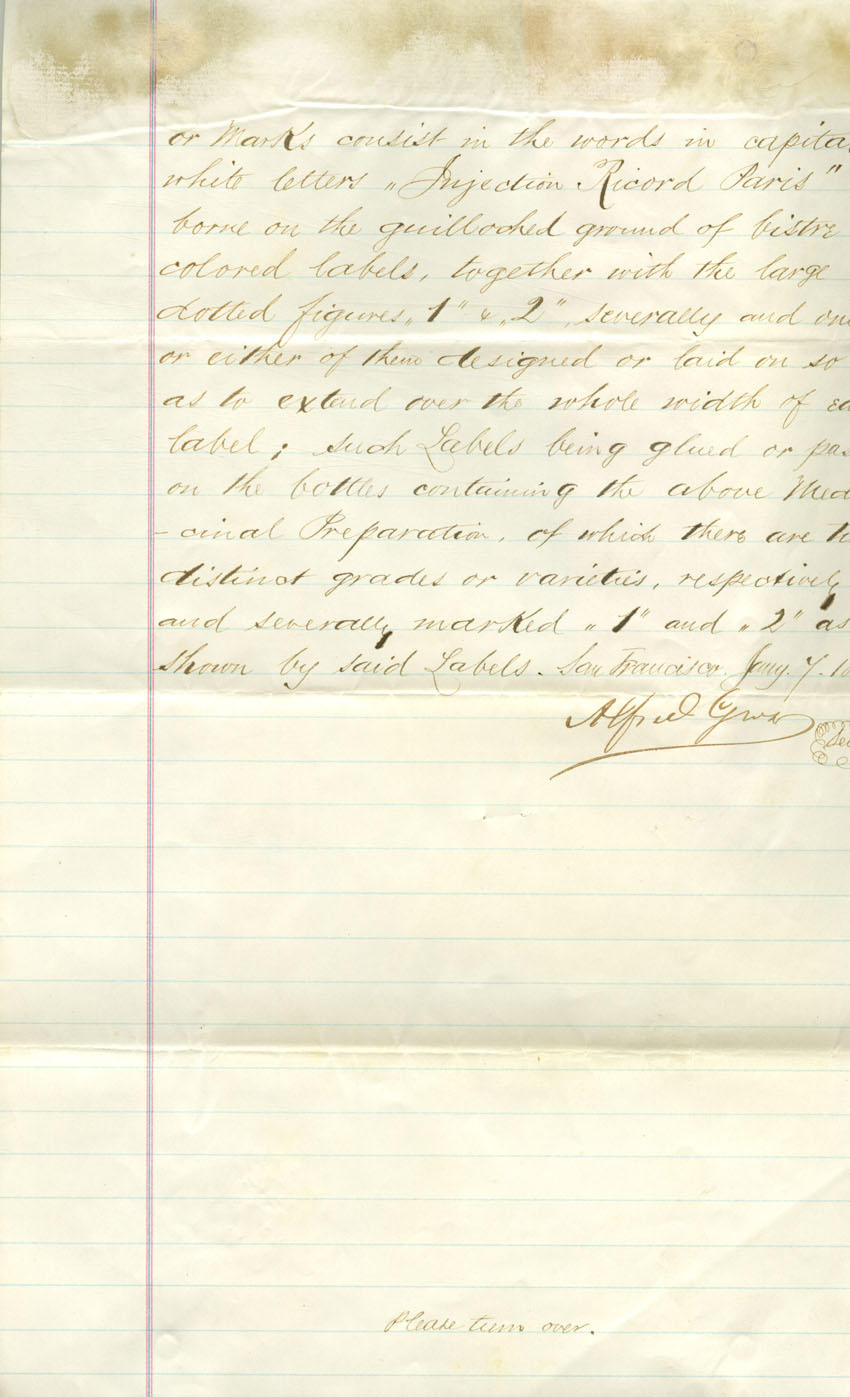 or Marks consist in the words in capita
white letters „Injection Ricord Paris"
borne on the guilloched ground of bistre
colored labels, together with the large
dotted figures „1" & „2", severally and one
or either of them designed or laid on so
as to extend over the whole width of ea
label; such Labels being glued or pas
on the bottles containing the above Med
-cinal Preparation, of which there are t
distinct grades or varieties, respectively
and severally marked „1" and „2" as
shown by said Labels. San Francisco. Jany. 7. 18
Alfred
Please turn over.